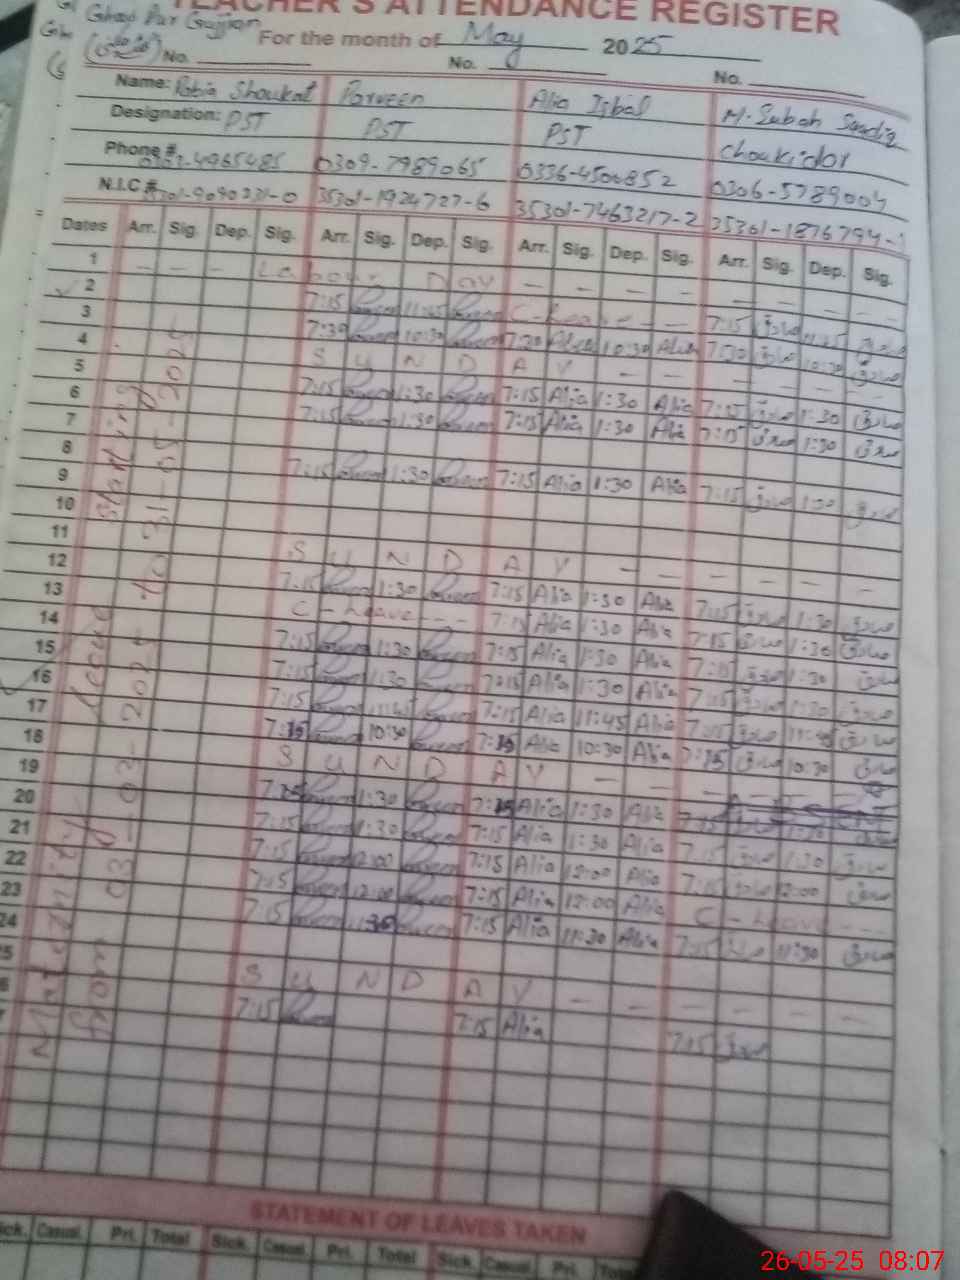 TEACHER'S ATTENDANCE REGISTER
Ghao Par Gujjran
For the month of May 2025
No. No. No.
Name: Rabia Shoukat Parveen Alia Iqbal M. Subah Saadiq
Designation: PST PST PST Choukidar
Phone # 4965485 0309-7989065 0336-4500852 0306-5789004
N.I.C # 35301-1924727-6 35301-7463217-2 35301-1876794-1
Dates Arr. Sig. Dep. Sig. Arr. Sig. Dep. Sig. Arr. Sig. Dep. Sig. Arr. Sig. Dep. Sig.
1 - - - Labour Day - - - - - - -
2 7:15 11:45 C-Leave - - 7:15 صادق 11:45 صادق
3 7:30 10:30 7:30 Alia 10:30 Alia 7:30 صادق 10:30 صادق
4 S U N D A Y - - - - -
5 7:15 1:30 7:15 Alia 1:30 Alia 7:15 صادق 1:30 صادق
6 7:15 1:30 7:15 Alia 1:30 Alia 7:15 صادق 1:30 صادق
7
8 7:15 1:30 7:15 Alia 1:30 Alia 7:15 صادق 1:30 صادق
9
10
11 S U N D A Y - - - - -
12 7:15 1:30 7:15 Alia 1:30 Alia 7:15 صادق 1:30 صادق
13 C-Leave - - 7:15 Alia 1:30 Alia 7:15 صادق 1:30 صادق
14 7:15 1:30 7:15 Alia 1:30 Alia 7:15 صادق 1:30 صادق
15 7:15 1:30 7:15 Alia 1:30 Alia 7:15 صادق 1:30 صادق
16 7:15 11:45 7:15 Alia 11:45 Alia 7:15 صادق 11:45 صادق
17 7:15 10:30 7:15 Alia 10:30 Alia 7:15 صادق 10:30 صادق
18 S U N D A Y - - - - -
19 7:15 1:30 7:15 Alia 1:30 Alia 7:15 1:30
20 7:15 1:30 7:15 Alia 1:30 Alia 7:15 صادق 1:30 صادق
21 7:15 12:00 7:15 Alia 12:00 Alia 7:15 صادق 12:00 صادق
22 7:15 12:00 7:15 Alia 12:00 Alia C-Leave - - -
23 7:15 11:30 7:15 Alia 11:30 Alia 7:15 11:30 صادق
24
25 S U N D A Y - - - - -
26 7:15 7:15 Alia 7:15 صادق
Maternity Leave Starting
from 03-03-2025 to 31-05-2025
STATEMENT OF LEAVES TAKEN
Sick. Casual. Pri. Total Sick. Casual. Pri. Total Sick. Casual. Pri. Total
26-05-25 08:07